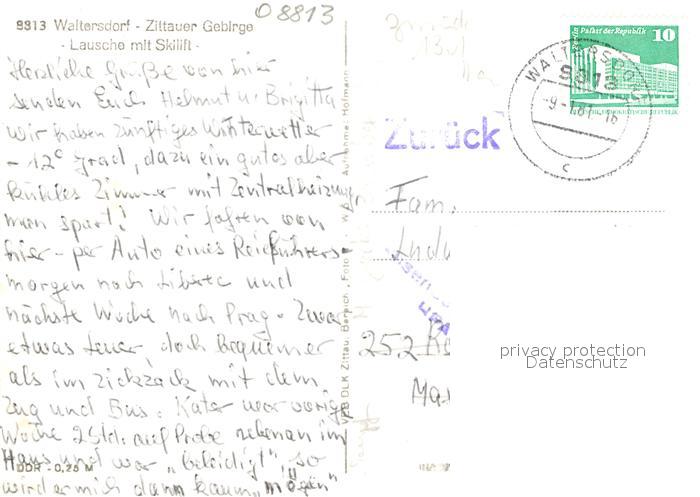 08813
8813 Waltersdorf - Zittauer Gebirge
- Lausche mit Skilift -
Herzliche Grüße von hier
senden Euch Helmut u. Brigitta
wir haben zünftiges Winterwetter
- 12° grad, dazu ein gutes aber
kühles Zimmer mit Zentralheizung,
man spart! Wir fahren von
hier - per Auto eines Reiseführers -
morgen nach Liberec und
nächste Woche nach Prag - Zwar
etwas teuer, doch bequemer
als im Zickzack mit dem
Zug und Bus. Kater war vorige
Woche 2 Std. auf Probe nebenan im
Haus und war „beleidigt", so
wird er mich dann kaum „mögen"
DDR - 0,25 M
VEB DLK Zittau, Bereich Foto
Aufnahme: Hofmann
Palast der Republik 10
DEUTSCHE DEMOKRATISCHE REPUBLIK
WALTERSDORF
8813
c
Zurück
Fam.
252
privacy protection
Datenschutz